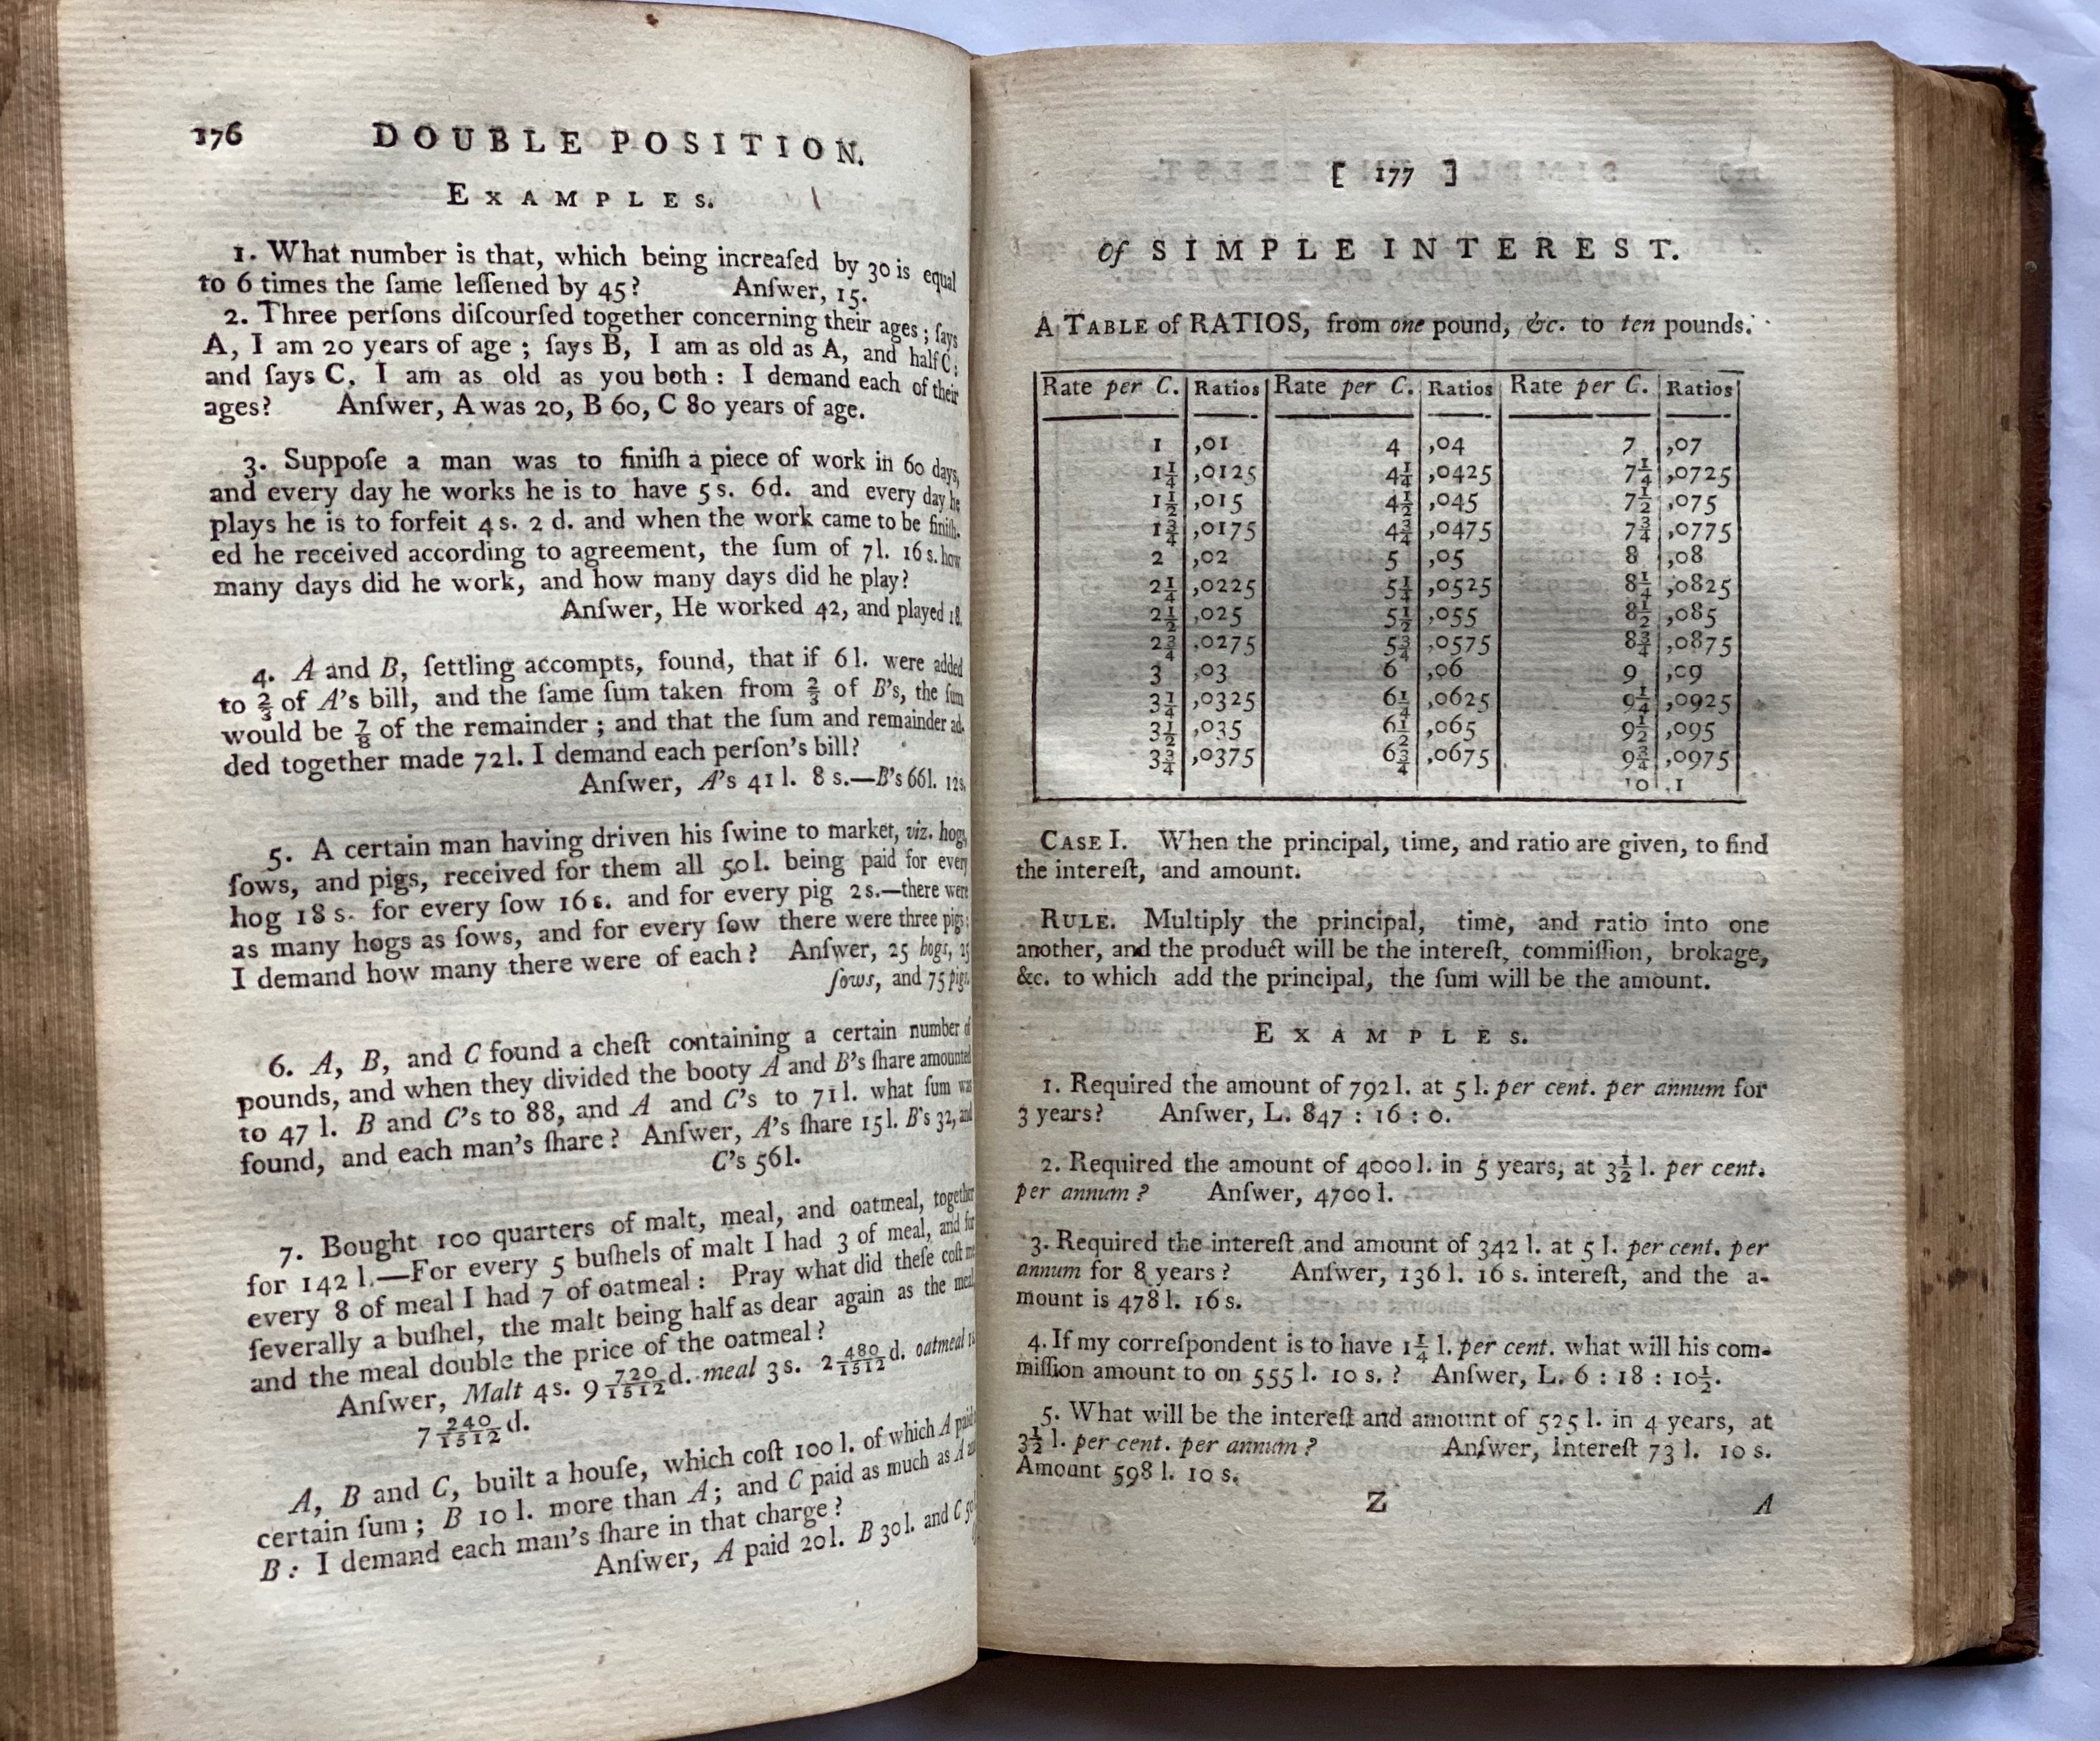 176 DOUBLE POSITION.
EXAMPLES.
1. What number is that, which being increaſed by 30 is equal
to 6 times the ſame leſſened by 45? Anſwer, 15.
2. Three perſons diſcourſed together concerning their ages; ſays
A, I am 20 years of age; ſays B, I am as old as A, and half C;
and ſays C, I am as old as you both: I demand each of their
ages? Anſwer, A was 20, B 60, C 80 years of age.
3. Suppoſe a man was to finiſh a piece of work in 60 days,
and every day he works he is to have 5 s. 6d. and every day he
plays he is to forfeit 4 s. 2 d. and when the work came to be finiſh-
ed he received according to agreement, the ſum of 7l. 16 s. how
many days did he work, and how many days did he play?
Anſwer, He worked 42, and played 18.
4. A and B, ſettling accompts, found, that if 6 l. were added
to 2/3 of A's bill, and the ſame ſum taken from 2/3 of B's, the ſum
would be 7/8 of the remainder; and that the ſum and remainder ad-
ded together made 72 l. I demand each perſon's bill?
Anſwer, A's 41 l. 8 s.—B's 66l. 12s.
5. A certain man having driven his ſwine to market, viz. hogs,
ſows, and pigs, received for them all 50 l. being paid for every
hog 18 s. for every ſow 16 s. and for every pig 2 s.—there were
as many hogs as ſows, and for every ſow there were three pigs;
I demand how many there were of each? Anſwer, 25 hogs, 25
ſows, and 75 pigs.
6. A, B, and C found a cheſt containing a certain number of
pounds, and when they divided the booty A and B's ſhare amounted
to 47 l. B and C's to 88, and A and C's to 71 l. what ſum was
found, and each man's ſhare? Anſwer, A's ſhare 15 l. B's 32, and
C's 56 l.
7. Bought 100 quarters of malt, meal, and oatmeal, together
for 142 l.—For every 5 buſhels of malt I had 3 of meal, and for
every 8 of meal I had 7 of oatmeal: Pray what did theſe coſt me
ſeverally a buſhel, the malt being half as dear again as the meal
and the meal double the price of the oatmeal?
Anſwer, Malt 4 s. 9 720/1512 d. meal 3 s. 2 480/1512 d. oatmeal
7 240/1512 d.
A, B and C, built a houſe, which coſt 100 l. of which A paid
certain ſum; B 10 l. more than A; and C paid as much as A
B: I demand each man's ſhare in that charge?
Anſwer, A paid 20 l. B 30 l. and C
[ 177 ]
Of SIMPLE INTEREST.
A TABLE of RATIOS, from one pound, &c. to ten pounds.
Rate per C. Ratios Rate per C. Ratios Rate per C. Ratios
1 ,01 4 ,04 7 ,07
1¼ ,0125 4¼ ,0425 7¼ ,0725
1½ ,015 4½ ,045 7½ ,075
1¾ ,0175 4¾ ,0475 7¾ ,0775
2 ,02 5 ,05 8 ,08
2¼ ,0225 5¼ ,0525 8¼ ,0825
2½ ,025 5½ ,055 8½ ,085
2¾ ,0275 5¾ ,0575 8¾ ,0875
3 ,03 6 ,06 9 ,09
3¼ ,0325 6¼ ,0625 9¼ ,0925
3½ ,035 6½ ,065 9½ ,095
3¾ ,0375 6¾ ,0675 9¾ ,0975
10 ,1
CASE I. When the principal, time, and ratio are given, to find
the intereſt, and amount.
RULE. Multiply the principal, time, and ratio into one
another, and the product will be the intereſt, commiſſion, brokage,
&c. to which add the principal, the ſum will be the amount.
EXAMPLES.
1. Required the amount of 792 l. at 5 l. per cent. per annum for
3 years? Anſwer, L. 847 : 16 : 0.
2. Required the amount of 4000 l. in 5 years, at 3½ l. per cent.
per annum? Anſwer, 4700 l.
3. Required the intereſt and amount of 342 l. at 5 l. per cent. per
annum for 8 years? Anſwer, 136 l. 16 s. intereſt, and the a-
mount is 478 l. 16 s.
4. If my correſpondent is to have 1¼ l. per cent. what will his com-
miſſion amount to on 555 l. 10 s.? Anſwer, L. 6 : 18 : 10½.
5. What will be the intereſt and amount of 525 l. in 4 years, at
3½ l. per cent. per annum? Anſwer, intereſt 73 l. 10 s.
Amount 598 l. 10 s.
Z A